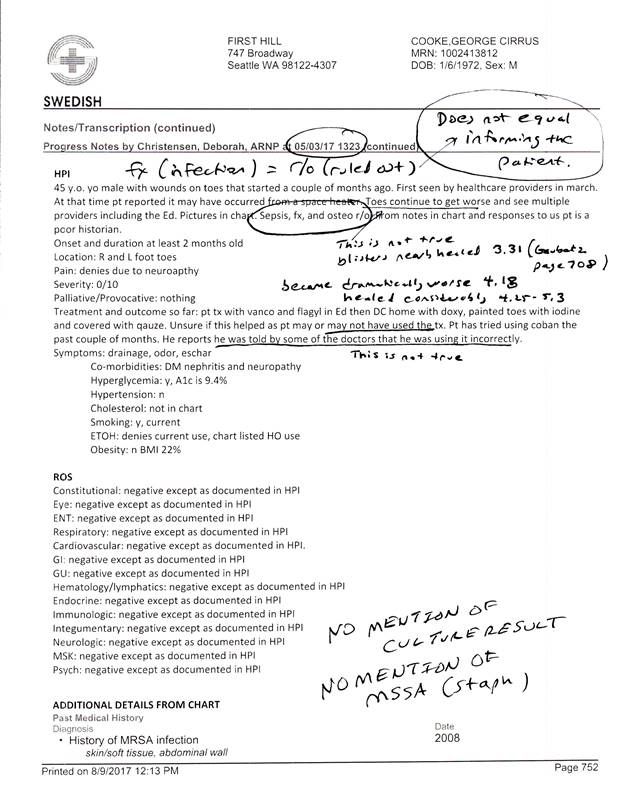 FIRST HILL
747 Broadway
Seattle WA 98122-4307
COOKE,GEORGE CIRRUS
MRN: 1002413812
DOB: 1/6/1972, Sex: M
SWEDISH
Notes/Transcription (continued)
Progress Notes by Christensen, Deborah, ARNP at 05/03/17 1323 (continued)
Does not equal
informing the
patient.
fx (infection) = r/o (ruled out)
HPI
45 y.o. yo male with wounds on toes that started a couple of months ago. First seen by healthcare providers in march.
At that time pt reported it may have occurred from a space heater. Toes continue to get worse and see multiple
providers including the Ed. Pictures in chart. Sepsis, fx, and osteo r/o. From notes in chart and responses to us pt is a
poor historian.
This is not true
Onset and duration at least 2 months old
blisters nearly healed 3.31 (Gaubatz
page 708)
Location: R and L foot toes
Pain: denies due to neuroapthy
Severity: 0/10
became dramatically worse 4.18
Palliative/Provocative: nothing
healed considerably 4.25-5.3
Treatment and outcome so far: pt tx with vanco and flagyl in Ed then DC home with doxy, painted toes with iodine
and covered with qauze. Unsure if this helped as pt may or may not have used the tx. Pt has tried using coban the
past couple of months. He reports he was told by some of the doctors that he was using it incorrectly.
Symptoms: drainage, odor, eschar
This is not true
Co-morbidities: DM nephritis and neuropathy
Hyperglycemia: y, A1c is 9.4%
Hypertension: n
Cholesterol: not in chart
Smoking: y, current
ETOH: denies current use, chart listed HO use
Obesity: n BMI 22%
ROS
Constitutional: negative except as documented in HPI
Eye: negative except as documented in HPI
ENT: negative except as documented in HPI
Respiratory: negative except as documented in HPI
Cardiovascular: negative except as documented in HPI.
GI: negative except as documented in HPI
GU: negative except as documented in HPI
Hematology/lymphatics: negative except as documented in HPI
Endocrine: negative except as documented in HPI
Immunologic: negative except as documented in HPI
Integumentary: negative except as documented in HPI
Neurologic: negative except as documented in HPI
MSK: negative except as documented in HPI
Psych: negative except as documented in HPI
NO MENTION OF
CULTURE RESULT
NO MENTION OF
MSSA (staph)
ADDITIONAL DETAILS FROM CHART
Past Medical History
Diagnosis
Date
• History of MRSA infection
2008
skin/soft tissue, abdominal wall
Printed on 8/9/2017 12:13 PM
Page 752